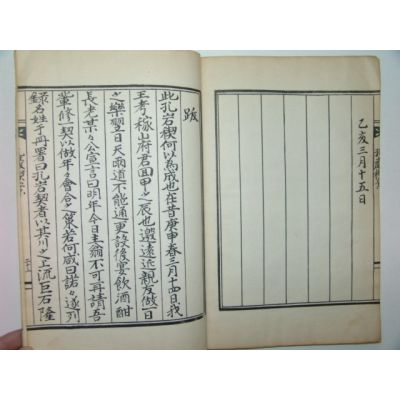 乙亥三月十五日
跋
此孔岩稧何以爲成也在昔庚申春三月十四日我
王考稼山府君回甲之辰也邀遠近親友做一日
之樂翌日天雨道不能通更設後宴飲酒酣
長老某々公宣言曰明年今日主翁不可再請吾
輩修一契以做年々會合之策若何咸曰諾々遂列
錄名姓于冊署曰孔岩契者以其川之上流巨石隆